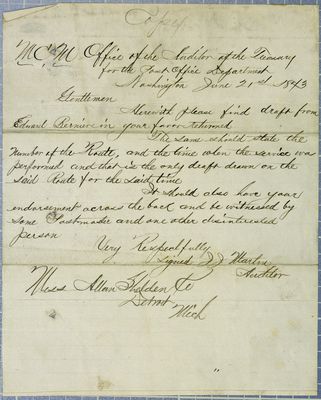 Copy
M.C.M Office of the Auditor of the Treasury
for the Post Office Department
Washington June 21st 1843
Gentlemen
Herewith please find draft from
Edward in your favor returned
The same should state the
number of the Route, and the time when the service was
performed and that is the only draft drawn on the
said Route for the said time
It should also have your
endorsement across the back and be witnessed by
some Postmaster and one other disinterested
person
Very Respectfully
Signed Martin
Auditor
Mess Allan Shelden Co
Detroit
Mich